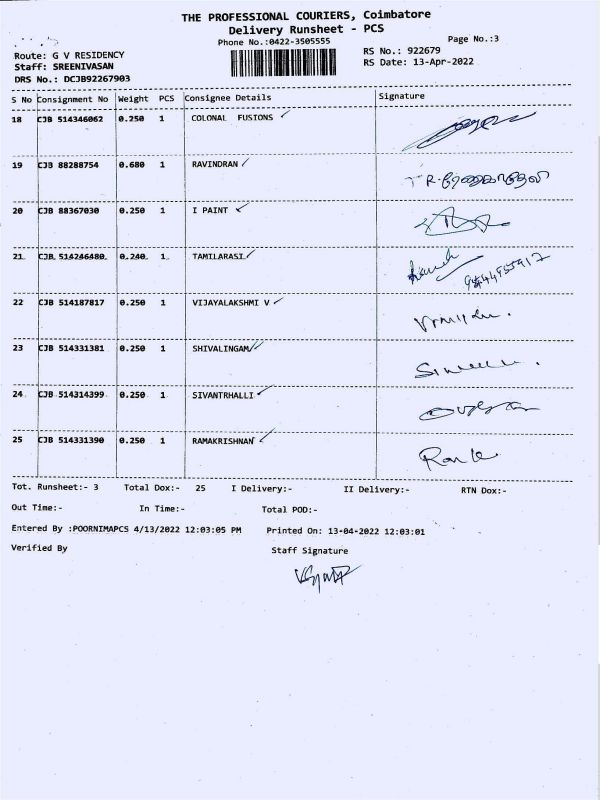 THE PROFESSIONAL COURIERS, Coimbatore
Delivery Runsheet - PCS
Phone No.:0422-3505555
Page No.:3
Route: G V RESIDENCY
RS No.: 922679
Staff: SREENIVASAN
RS Date: 13-Apr-2022
DRS No.: DCJB92267903
S No Consignment No Weight PCS Consignee Details Signature
18 CJB 514346062 0.250 1 COLONAL FUSIONS
19 CJB 88288754 0.680 1 RAVINDRAN
20 CJB 88367030 0.250 1 I PAINT
21 CJB 514246480 0.240 1 TAMILARASI
22 CJB 514187817 0.250 1 VIJAYALAKSHMI V
23 CJB 514331381 0.250 1 SHIVALINGAM
24 CJB 514314399 0.250 1 SIVANTRHALLI
25 CJB 514331390 0.250 1 RAMAKRISHNAN
Tot. Runsheet:- 3 Total Dox:- 25 I Delivery:- II Delivery:- RTN Dox:-
Out Time:- In Time:- Total POD:-
Entered By :POORNIMAPCS 4/13/2022 12:03:05 PM Printed On: 13-04-2022 12:03:01
Verified By Staff Signature